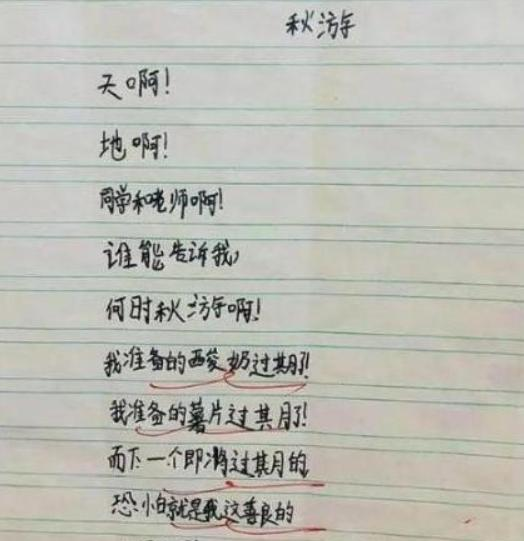 秋游
天啊！
地啊！
同学和老师啊！
谁能告诉我，
何时秋游啊！
我准备的酸奶过期了！
我准备的薯片过期了！
而下一个即将过期的
恐怕就是我这善良的